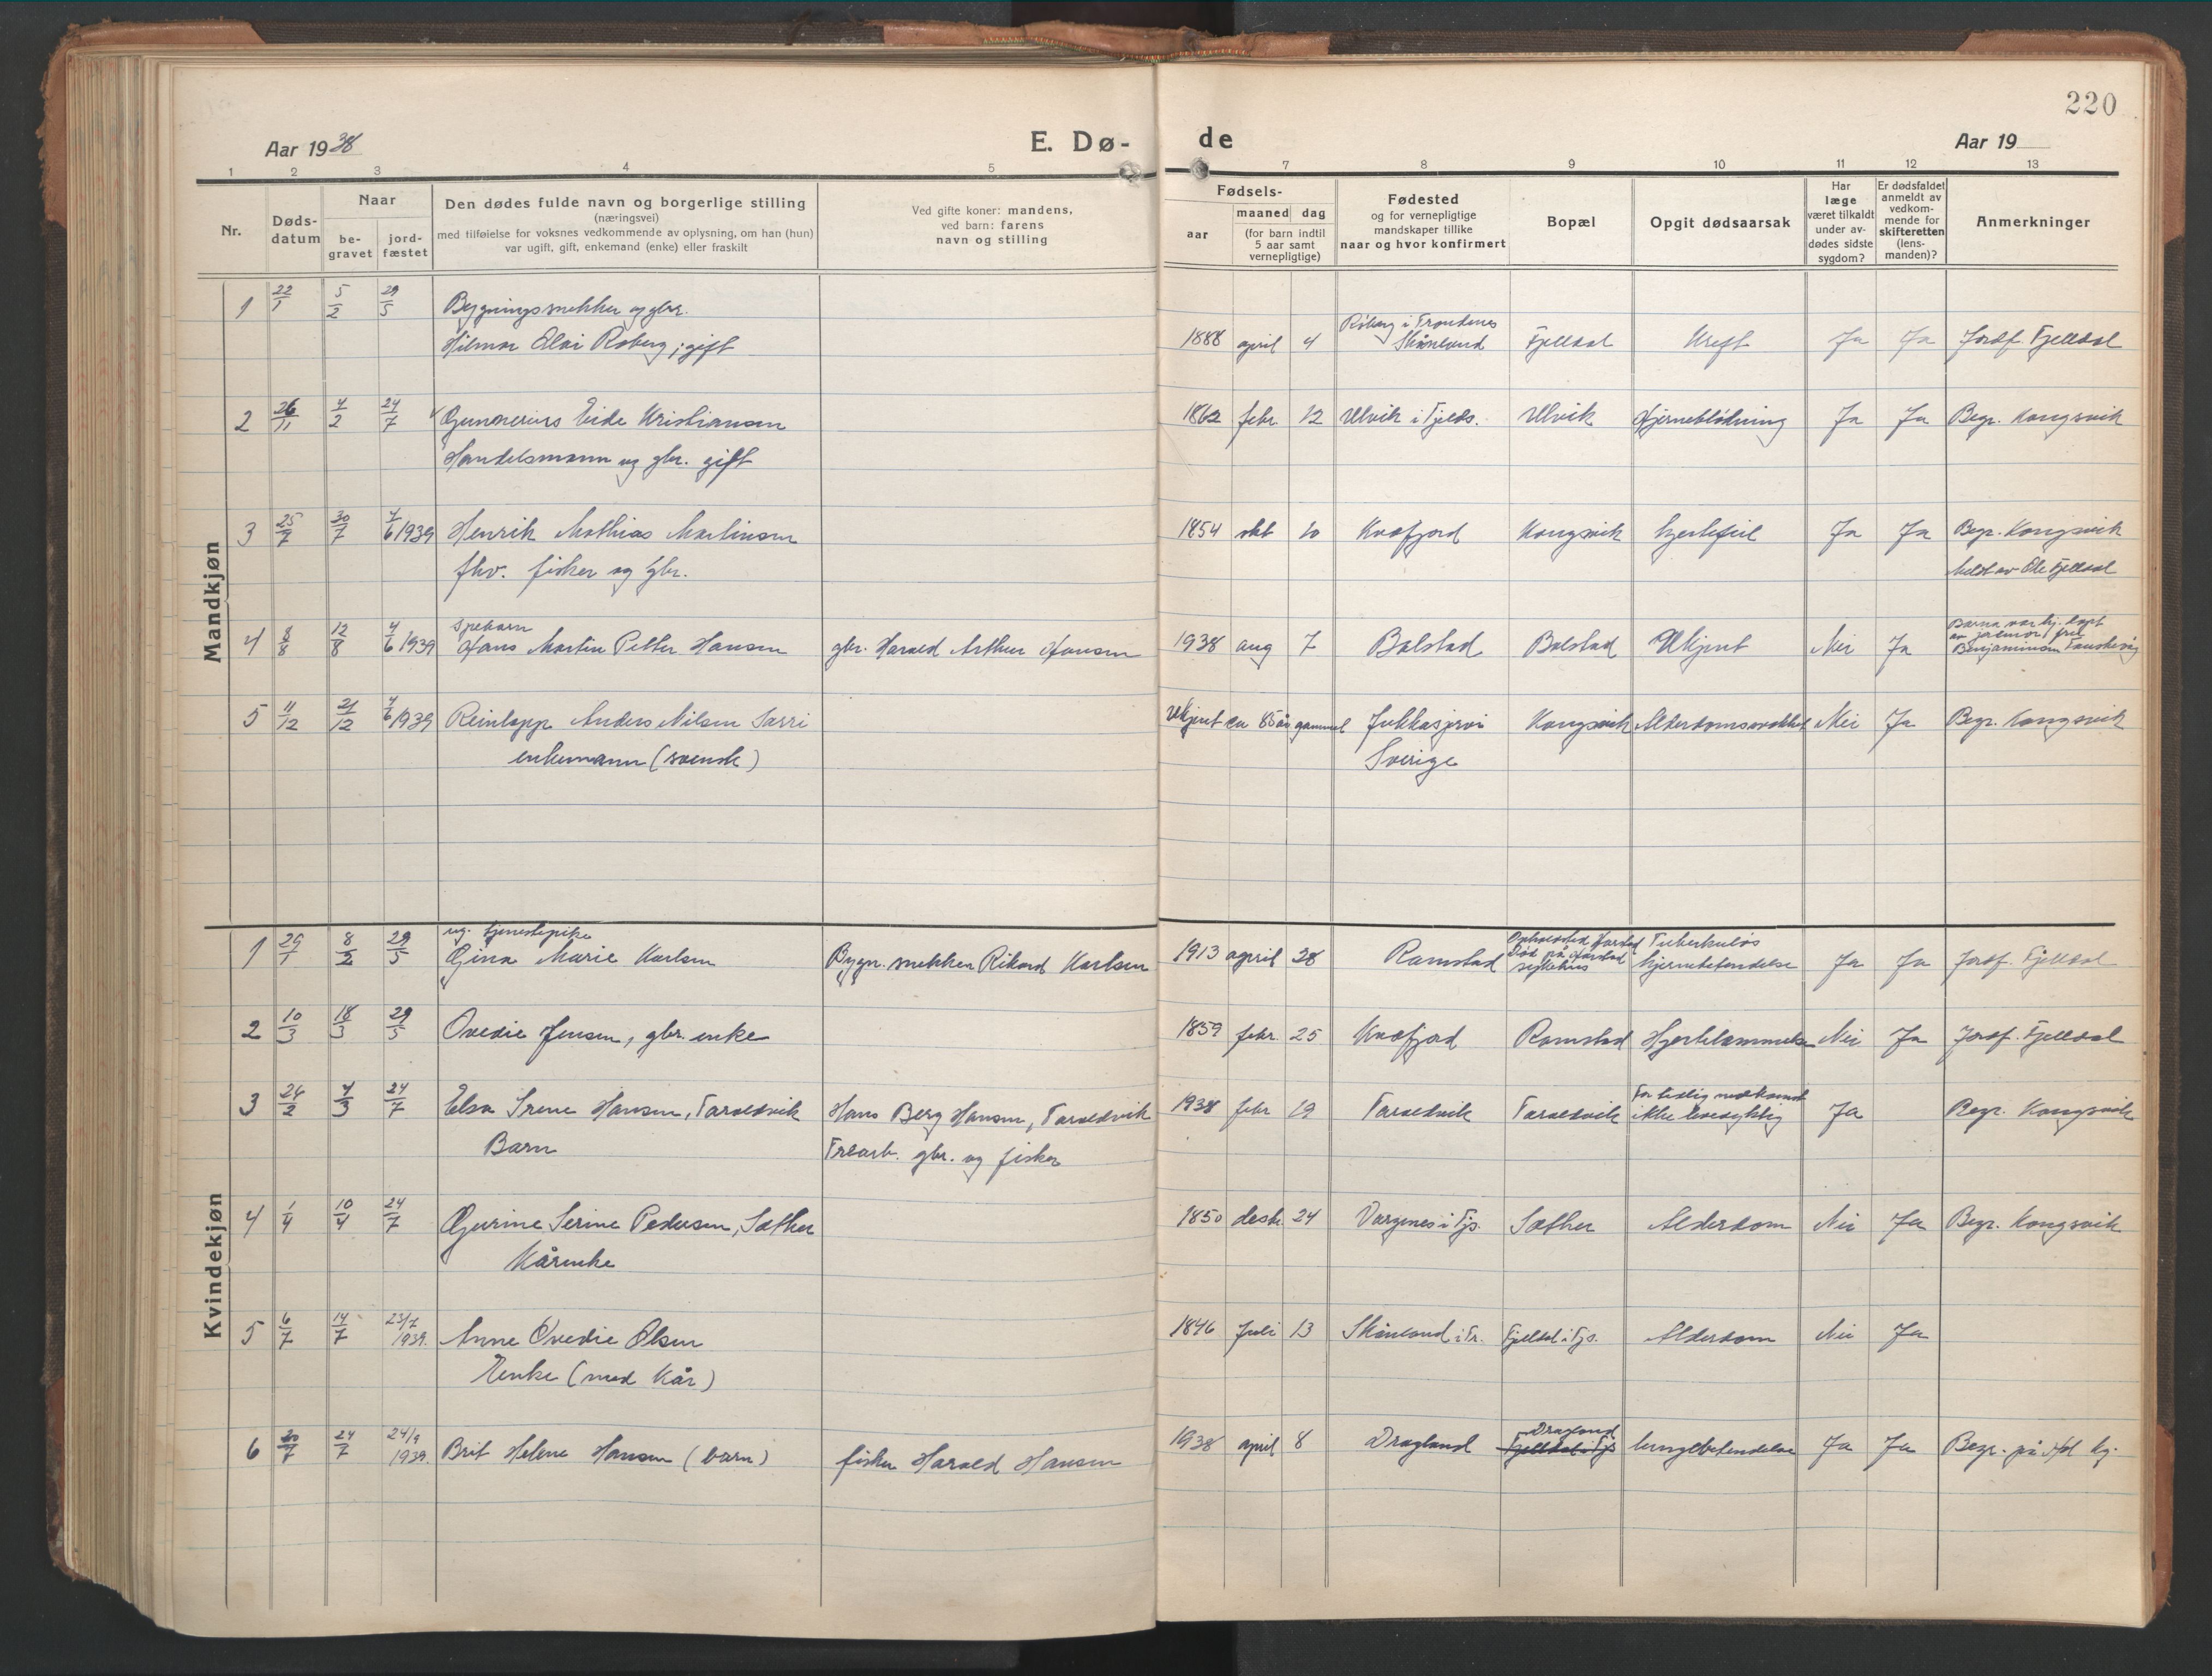 220
Aar 1938
E. Dø-
de
Aar 19
1 2 3 4 5 7 8 9 10 11 12 13
Nr.
Døds-
datum
Naar
be-
gravet
jord-
fæstet
Den dødes fulde navn og borgerlige stilling
(næringsvei)
med tilføielse for voksnes vedkommende av oplysning, om han (hun)
var ugift, gift, enkemand (enke) eller fraskilt
Ved gifte koner: mandens,
ved barn: farens
navn og stilling
Fødsels-
aar
maaned dag
(for barn indtil
5 aar samt
vernepligtige)
Fødested
og for vernepligtige
mandskaper tillike
naar og hvor konfirmert
Bopæl
Opgit dødsaarsak
Har
læge
været tilkaldt
under av-
dødes sidste
sygdom?
Er dødsfaldet
anmeldt av
vedkom-
mende for
skifteretten
(lens-
manden)?
Anmerkninger
Mandkjøn
1 22/1 5/2 29/5 Bygningssnekker og gbr.
Hilmar Elai Roberg; gift
1888 april 4 Røberg i Trondenes
Skånland Fjelldal Kreft Ja Ja Jordf. Fjelldal
2 26/11 4/2 24/7 Gunnerius Eide Kristiansen
Handelsmann og gbr. gift
1862 febr. 12 Ulvik i Tjelds. Ulvik Hjerneblødning Ja Ja Begr. Kongsvik
3 25/7 30/7 4/6 1939 Henrik Mathias Martinsen
fhv. fisker og gbr.
1854 okt 10 Kvæfjord Kongsvik hjertefeil Ja Ja Begr. Kongsvik
meldt av Ole Fjelldal
4 8/8 12/8 4/6 1939 Spebarn
Hans Martin Petter Hansen gbr. Harald Arthur Hansen
1938 aug 7 Balstad Balstad Ukjent Nei Ja Barna var hj. døpt
av jordmor frk
Benjaminsen
5 11/12 21/12 4/6 1939 Reinlapp Anders Nilsen Sarri
enkemann (svensk)
Ukjent ca 85 år gammel Jukkasjervi
Sverige Kongsvik Alderdomssvakhet Nei Ja Begr. Kongsvik
Kvindekjøn
1 29/1 8/2 29/5 ug. tjenestepike
Gina Marie Karlsen Bygn. snekker Rikard Karlsen
1913 april 28 Ramstad Opholdsted Harstad
Død på Harstad
sykehus Tuberkuløs
hjernebetendelse Ja Ja Jordf. Fjelldal
2 10/3 18/3 29/5 Ovedie Jensen, gbr. enke
1859 febr. 25 Kvæfjord Ramstad Hjertelammelse Nei Ja Jordf. Fjelldal
3 24/2 4/3 24/7 Elsa Irene Hansen, Taraldvik
Barn
Hans Berg Hansen, Taraldvik
Trearb. gbr. og fisker
1938 febr 19 Taraldvik Taraldvik For tidlig nedkomst
ikke levedyktig Ja Begr. Kongsvik
4 1/4 10/4 24/7 Gurine Serine Pedersen, Sæther
Kårenke
1850 desbr 24 Vargenes i Tjs. Sæther Alderdom Nei Ja Begr. Kongsvik
5 6/7 14/7 23/7 1939. Anne Ovedie Olsen
Enke (med kår)
1846 Juli 13 Skånland i Tr. Fjelldal i Tjs. Alderdom Nei Ja
6 20/7 24/7 24/9 1939. Brit Helene Hansen (barn) fisker Harald Hansen
1938 april 8 Dragland Dragland
Fjelldal i Tjs lungebetendelse Ja Ja Begr. på